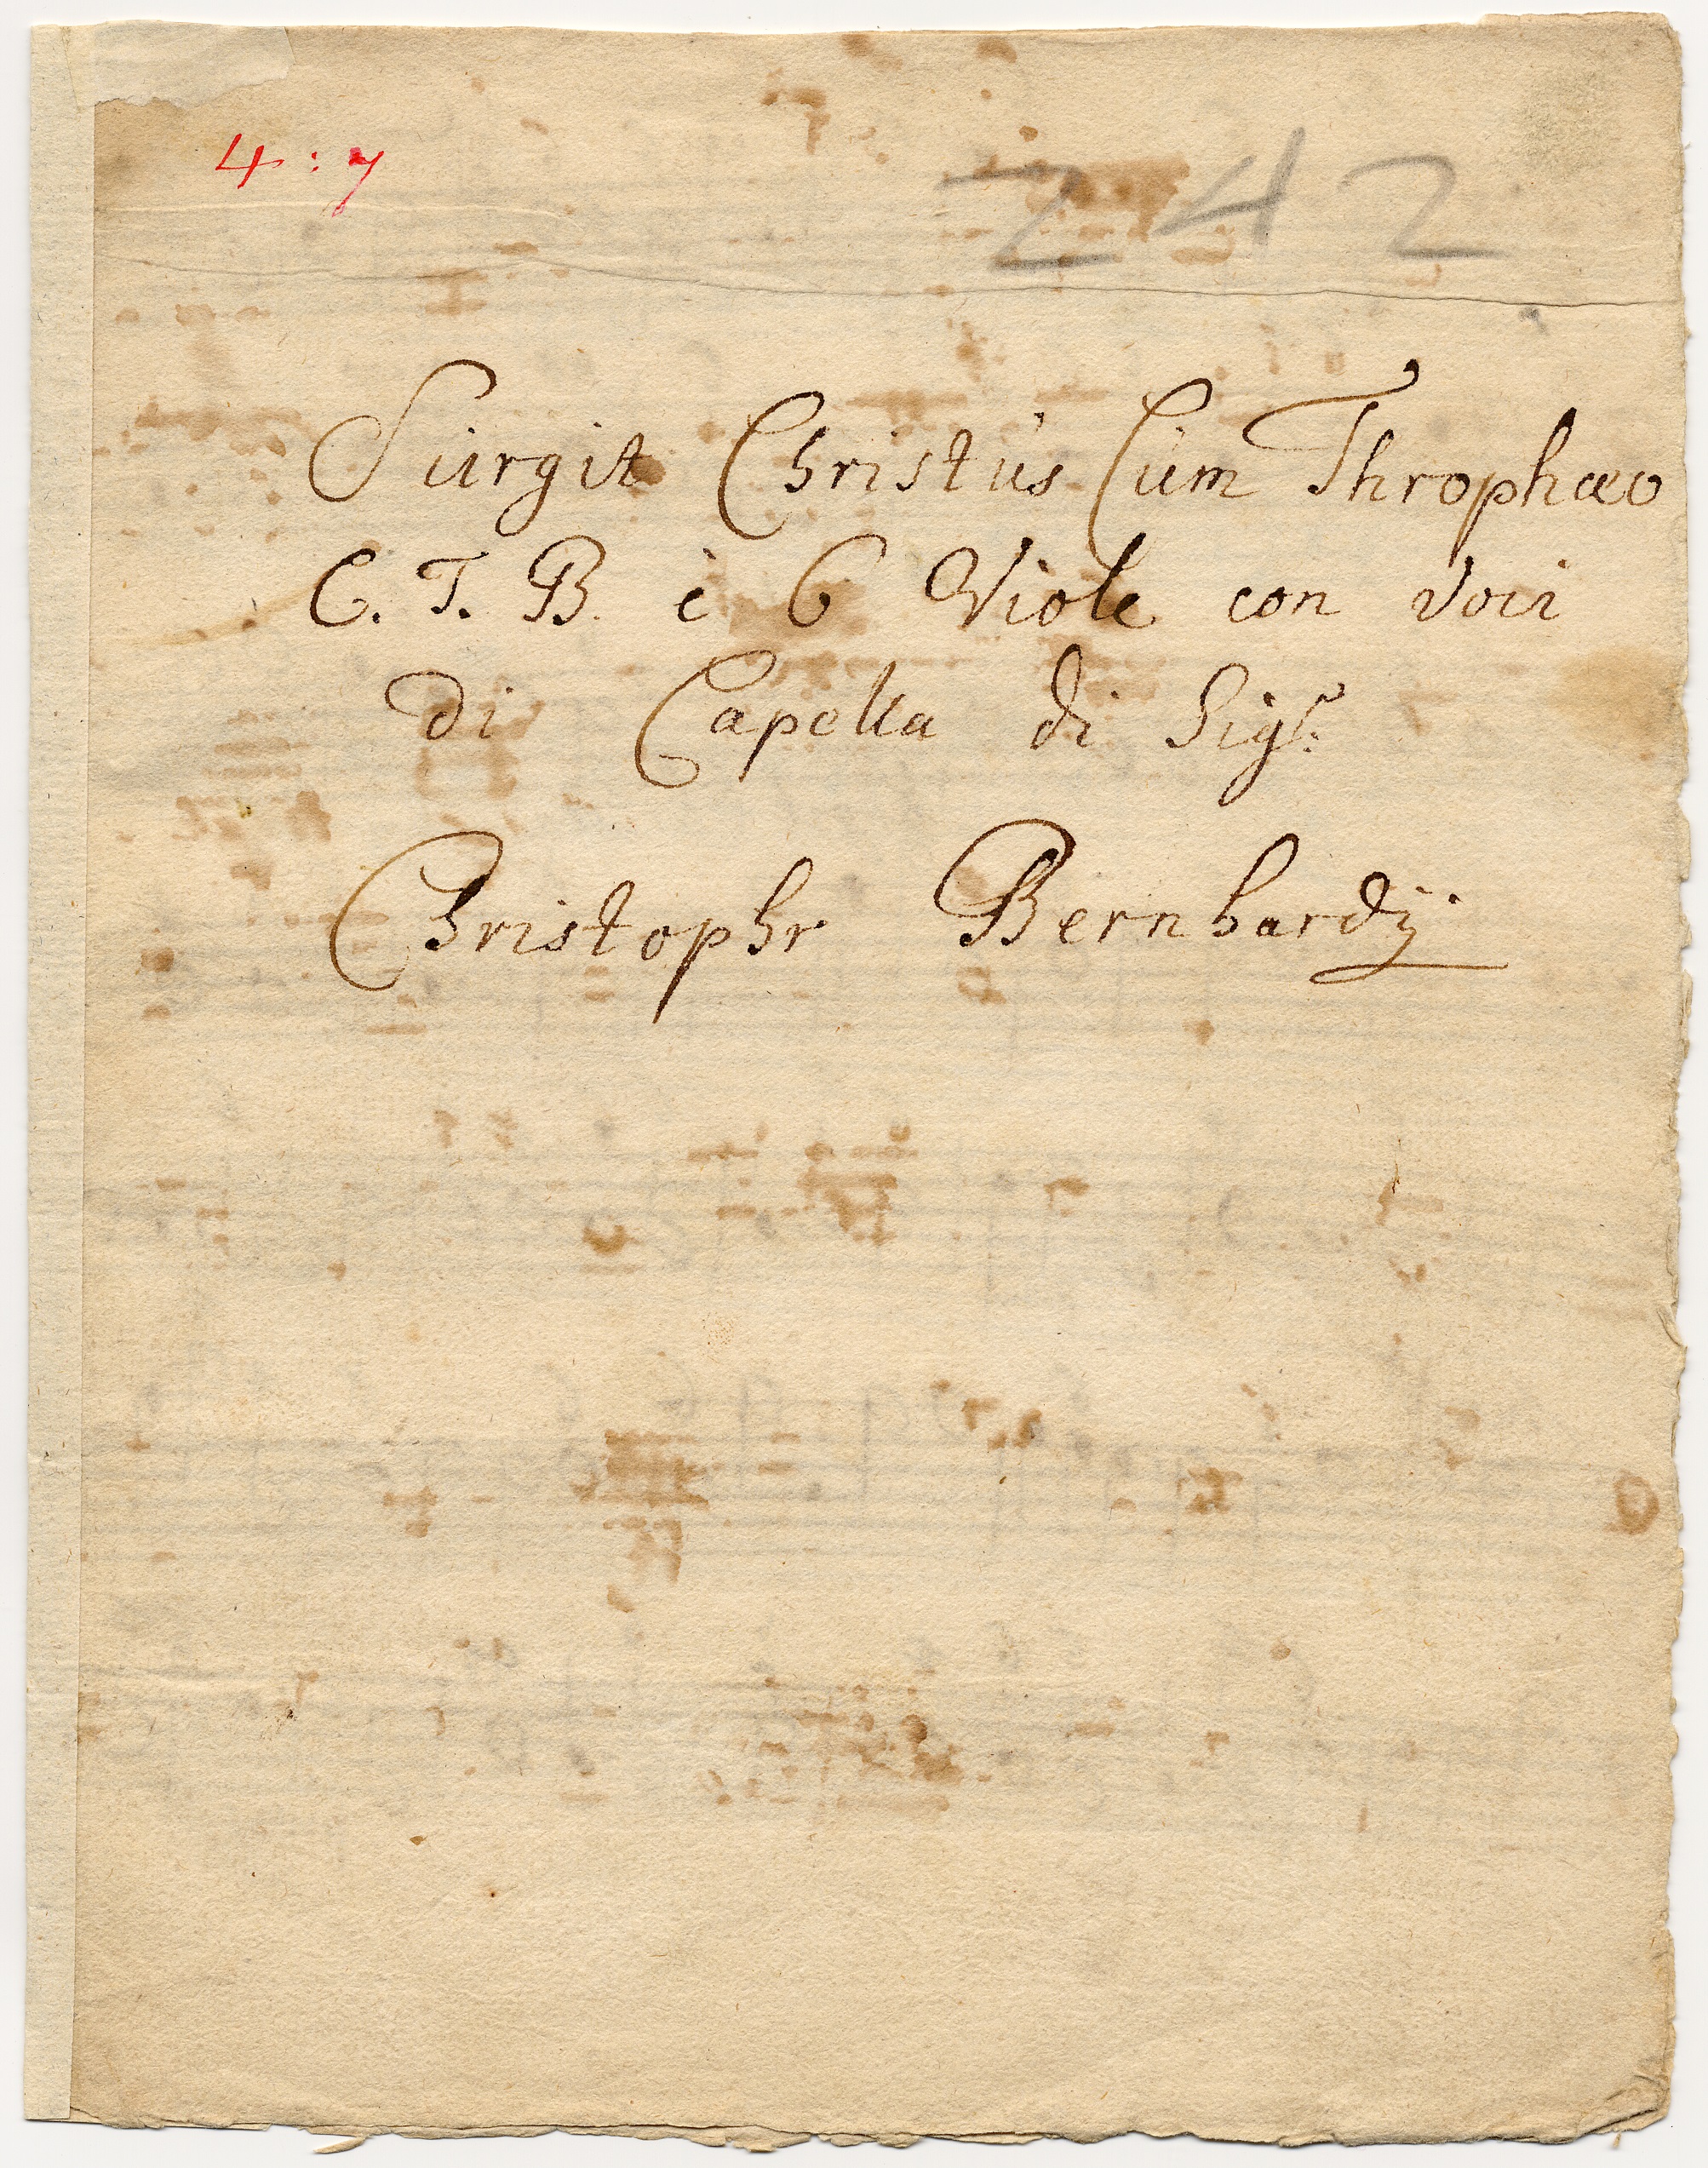 4:7
242
Surgit Christus Cum Throphæo
C. T. B. è 6 Viole con voci
di Capella di Sigr:
Christophr Bernhardij